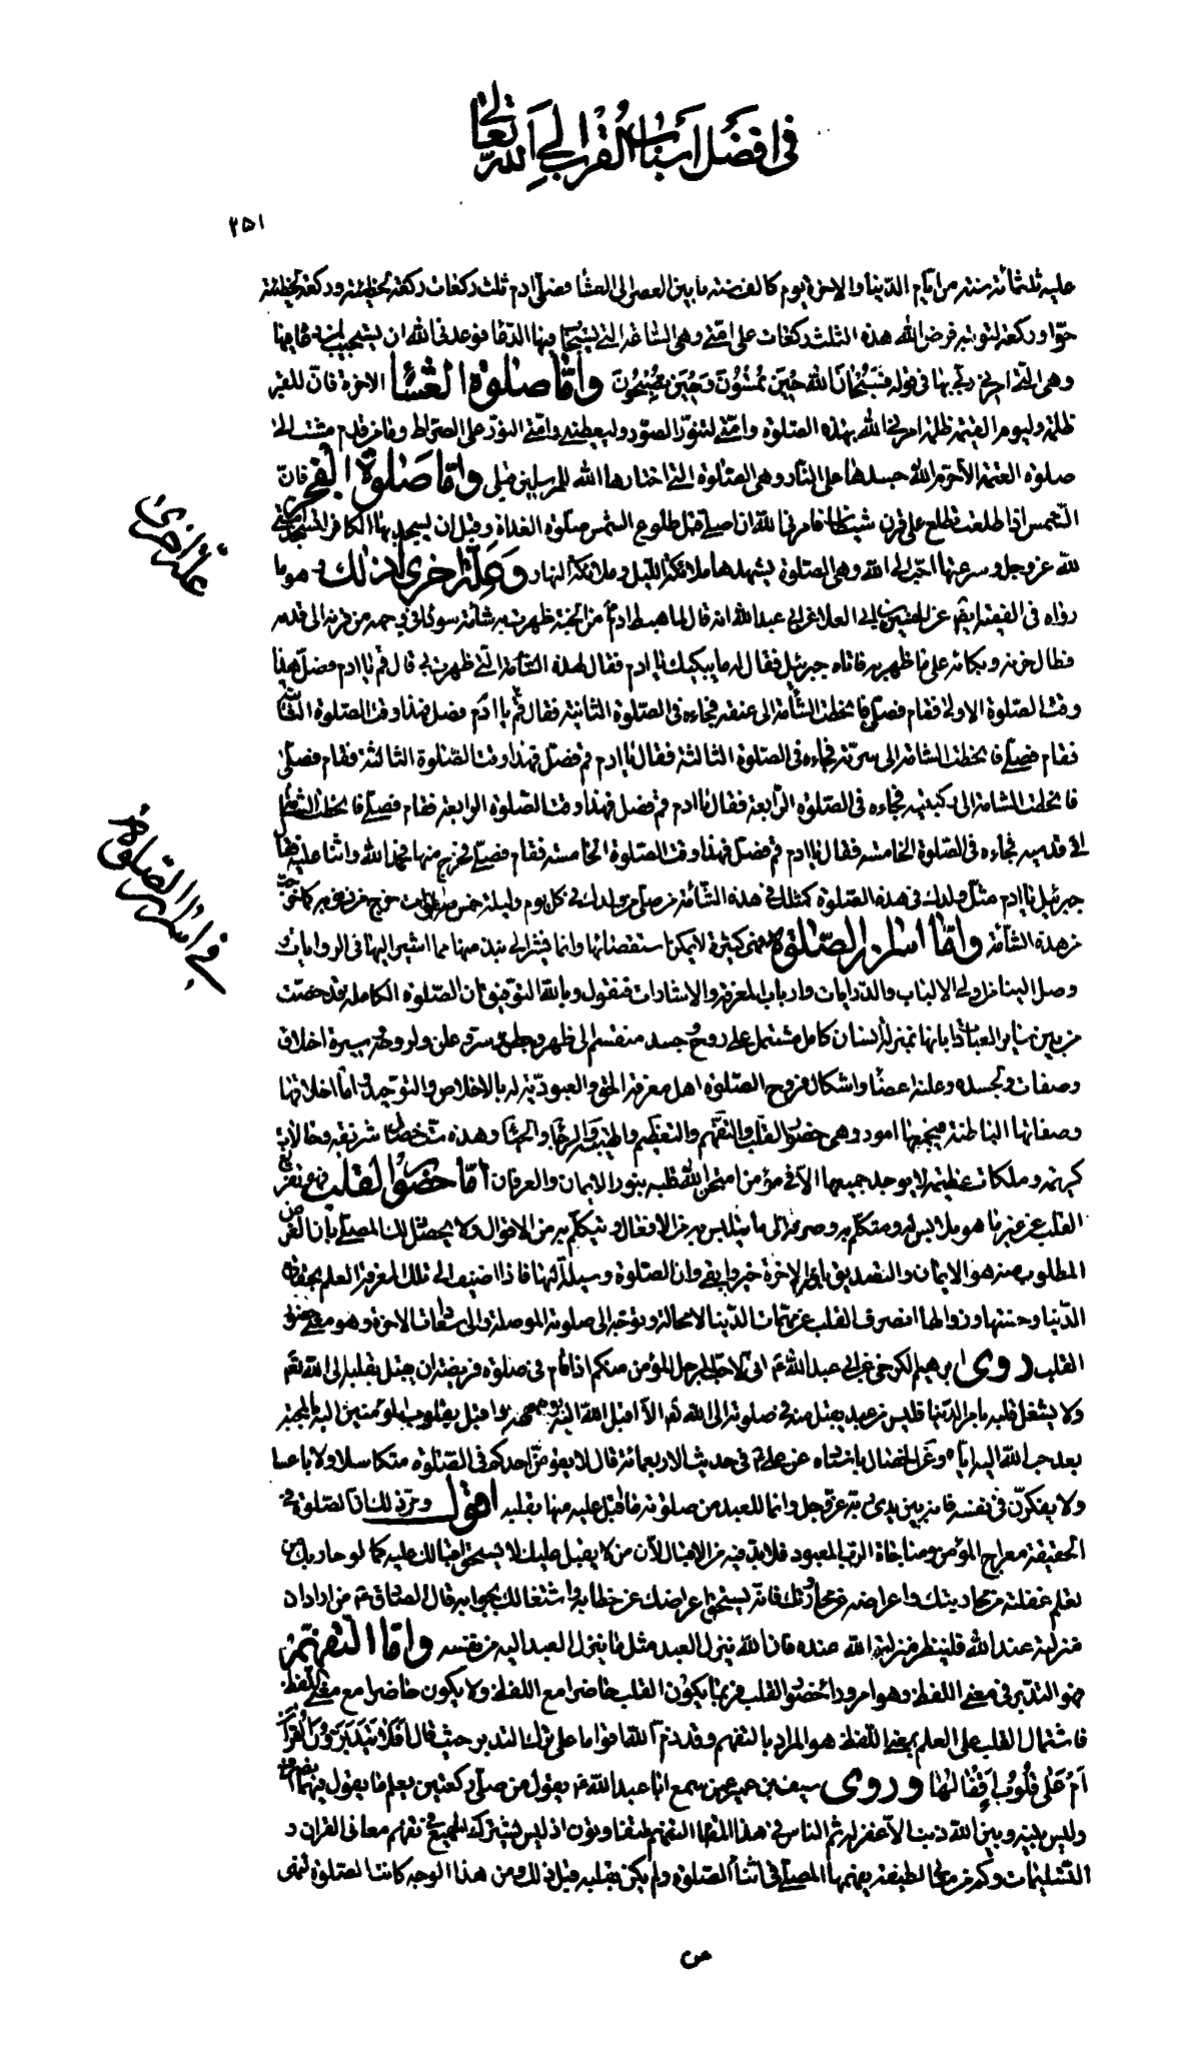 في افضل اسباب القرب الى الله تعالى
٢٥١
عليه ثلثمائة سنة من ايام الدنيا والاخرة يوم كالف سنة ما بين العصر الى العشا وصلى ادم ثلث ركعات ركعة لخطيئته وركعة لخطيئة
حوا وركعة لتوبته ففرض الله هذه الثلث ركعات على امتي وهي الساعة التي يستجاب فيها الدعا فوعدني الله ان يستجيب لمن دعا فيها
وهي التي امرني ربي بها في قوله فَسُبْحَانَ اللهِ حِينَ تُمْسُونَ وَحِينَ تُصْبِحُونَ وامّا صلوة العشا الاخرة فان للقبر
ظلمة وليوم القيمة ظلمة امرني الله بهذه الصلوة وامتي لتنور الصور وليعطيني وامتي النور على الصراط وما من قدم مشت الى
صلوة العتمة الا حرم الله جسدها على النار وهي الصلوة التي اختارها الله للمرسلين قبلي وامّا صَلوة الفجر فان
الشمس اذا طلعت تطلع على قرن شيطان فامرني الله ان اصلي قبل طلوع الشمس صلوة الغداة وقبل ان يسجد بها الكافر لتسجد امتي
لله عز وجل وسرعتها احب الى الله وهي الصلوة يشهدها ملائكة الليل وملائكة النهار وَعلّة اخرى لذلك هو ما
علة اخرى
رواه في الفقيه ايضا عن الحسين بن ابي العلا عن ابي عبد الله انه قال لما هبط ادم من الجنة ظهرت به شامة سودا في وجهه من قرنه الى قدمه
فطال حزنه وبكائه على ما ظهر به فاتاه جبرئيل فقال له ما يبكيك يا ادم فقال لهذه الشامة التي ظهرت بي قال قم يا ادم فصل فهذا
وقت الصلوة الاولى فقام فصلى فانحطت الشامة الى عنقه فجاءه في الصلوة الثانية فقال قم يا ادم فصل فهذا وقت الصلوة الثانية
فقام فصلى فانحطت الشامة الى سرته فجاءه في الصلوة الثالثة فقال يا ادم قم فصل فهذا وقت الصلوة الثالثة فقام فصلى
فانحطت الشامة الى ركبتيه فجاءه في الصلوة الرابعة فقال يا ادم قم فصل فهذا وقت الصلوة الرابعة فقام فصلى فانحطت الشامة
الى قدميه فجاءه في الصلوة الخامسة فقال يا ادم قم فصل فهذا وقت الصلوة الخامسة فقام فصلى فخرج منها فحمد الله واثنا عليه فقال
جبرئيل يا ادم مثل ولدك في هذه الصلوة كمثلك في هذه الشامة من صلى من ولدك في كل يوم وليلة خمس صلوات خرج من ذنوبه كما خرجت
من هذه الشامة وامّا اسرار الصّلوة فهي كثيرة لا يمكن استقصائها وانما نشير الى نبذ منها مما اشير اليها في الروايات
في اسرار الصلوة
وصل الينا من اولي الالباب والدرايات وارباب المعرفة والاشارات فنقول وبالله التوفيق ان الصلوة الكاملة قد خصت
من بين ساير العبادات بانها بمنزلة انسان كامل مشتمل على روح وجسد منقسم الى ظهر وبطن وسر وعلن ولروحه وسره اخلاق
وصفات ولجسده وعلنه اعضا واشكال فروح الصلوة اهل معرفة الحق والعبودية له بالاخلاص والتوحيد وامّا اخلاقها
وصفاتها الباطنة فيجمعها امور وهي حضور القلب والتفهم والتعظيم والهيبة والرجا والحيا وهذه ست خصال شريفة وحالات
كريمة وملكات عظيمة لا يوجد جميعها الا في مؤمن امتحن الله قلبه بنور الايمان والعرفان امّا حضور القلب فهو تفريغ
القلب عن غير ما هو ملابس له ومتكلم به وصرفه الى ما يتلبس به من الافعال ويتكلم به من الاقوال ولا يحصل لك المصلي بان الغرض
المطلوب منه هو الايمان والتصديق بان الاخرة خير وابقى وان الصلوة وسيلة اليها فاذا اضيف الى تلك المعرفة العلم بحقارة
الدنيا وخستها وزوالها انصرف القلب عن مهمات الدنيا لا محالة وتوجه الى صلوته الموصلة الى سعادات الاخرة وهو معنى حضور
القلب روى ابرهيم الكرخي عن ابي عبد الله ع اني لاحب للرجل المؤمن منكم اذا قام في صلوة فريضة ان يقبل بقلبه الى الله تعالى
ولا يشغل قلبه بامر الدنيا فليس من عبد يقبل منه في صلوته الى الله تعالى الا اقبل الله اليه بوجهه واقبل بقلوب المؤمنين اليه بالمحبة
بعد حب الله اليه اياه وعن الخصال باسناده عن علي ع في حديث الاربعمائة قال لا يقومن احدكم في الصلوة متكاسلا ولا ناعسا
ولا يفكرن في نفسه فانه بين يدي ربه عز وجل وانما للعبد من صلوته ما اقبل عليه منها بقلبه اقول وسر ذلك ان الصلوة في
الحقيقة معراج المؤمن ومناجاة الرب المعبود فلا بد فيه من الاقبال لان من لا يقبل عليك لا يستحق اقبالك عليه كما لو حادثك من
تعلم غفلته من محادثتك واعراضه عن محاورتك فانه يستحق اعراضك عن خطابه واشتغالك بجوابه قال الصادق ع من اراد ان
منزلته عند الله فلينظر منزلة الله عنده فان الله ينزل العبد مثل ما ينزل العبد اليه من نفسه وامّا التفهّم
فهو التدبر في معنى اللفظ وهو امر وراء حضور القلب فربما يكون القلب حاضرا مع اللفظ ولا يكون حاضرا مع معنى اللفظ
فاشتمال القلب على العلم بمعنى اللفظ هو المراد بالتفهم وقد ذم الله اقواما على ترك التدبر حيث قال اَفَلا يَتَدَبَّرُونَ القُرآنَ
اَمْ عَلى قُلُوبٍ اَقْفَالُهَا وروى سيف بن عميرة عمن سمع ابا عبد الله ع يقول من صلى ركعتين يعلم ما يقول فيهما انصرف
وليس بينه وبين الله ذنب الا غفر له ثم الناس في هذا المقام التفهم متفاوتون اذ ليس يشترك الجميع في تفهم معاني القران و
التسبيحات وكم من معان لطيفة يفهمها المصلي في اثنا الصلوة ولم يكن بقلبه قبل ذلك ومن هذا الوجه كانت الصلوة تنهى